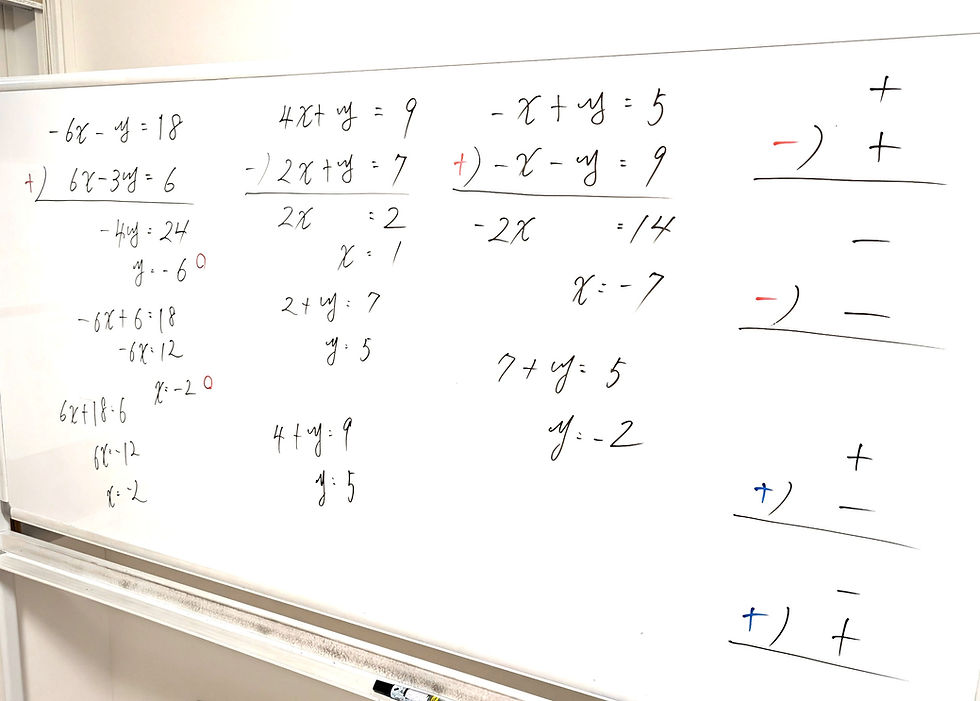 -6x-y=18
+) 6x-3y=6
-4y=24
y=-6
-6x+6=18
-6x=12
x=-2
6x+18=6
6x=-12
x=-2
4x+y=9
-) 2x+y=7
2x =2
x=1
2+y=7
y=5
4+y=9
y=5
-x+y=5
+) -x-y=9
-2x =14
x=-7
7+y=5
y=-2
+
-) +
-
-) -
+
+) -
-
+) +